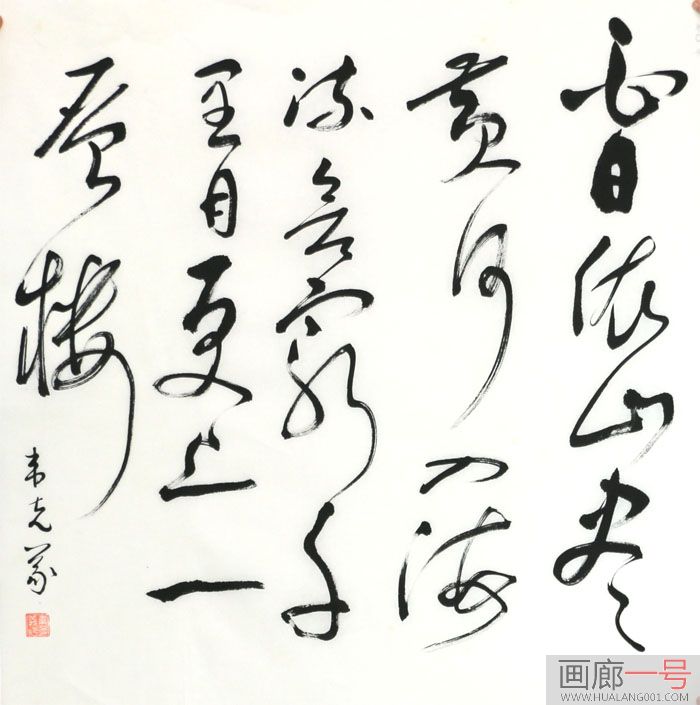 白日依山尽
黄河入海
流欲穷千
里目更上一
层楼
韦克义
画廊一号
WWW.HUALANG001.COM